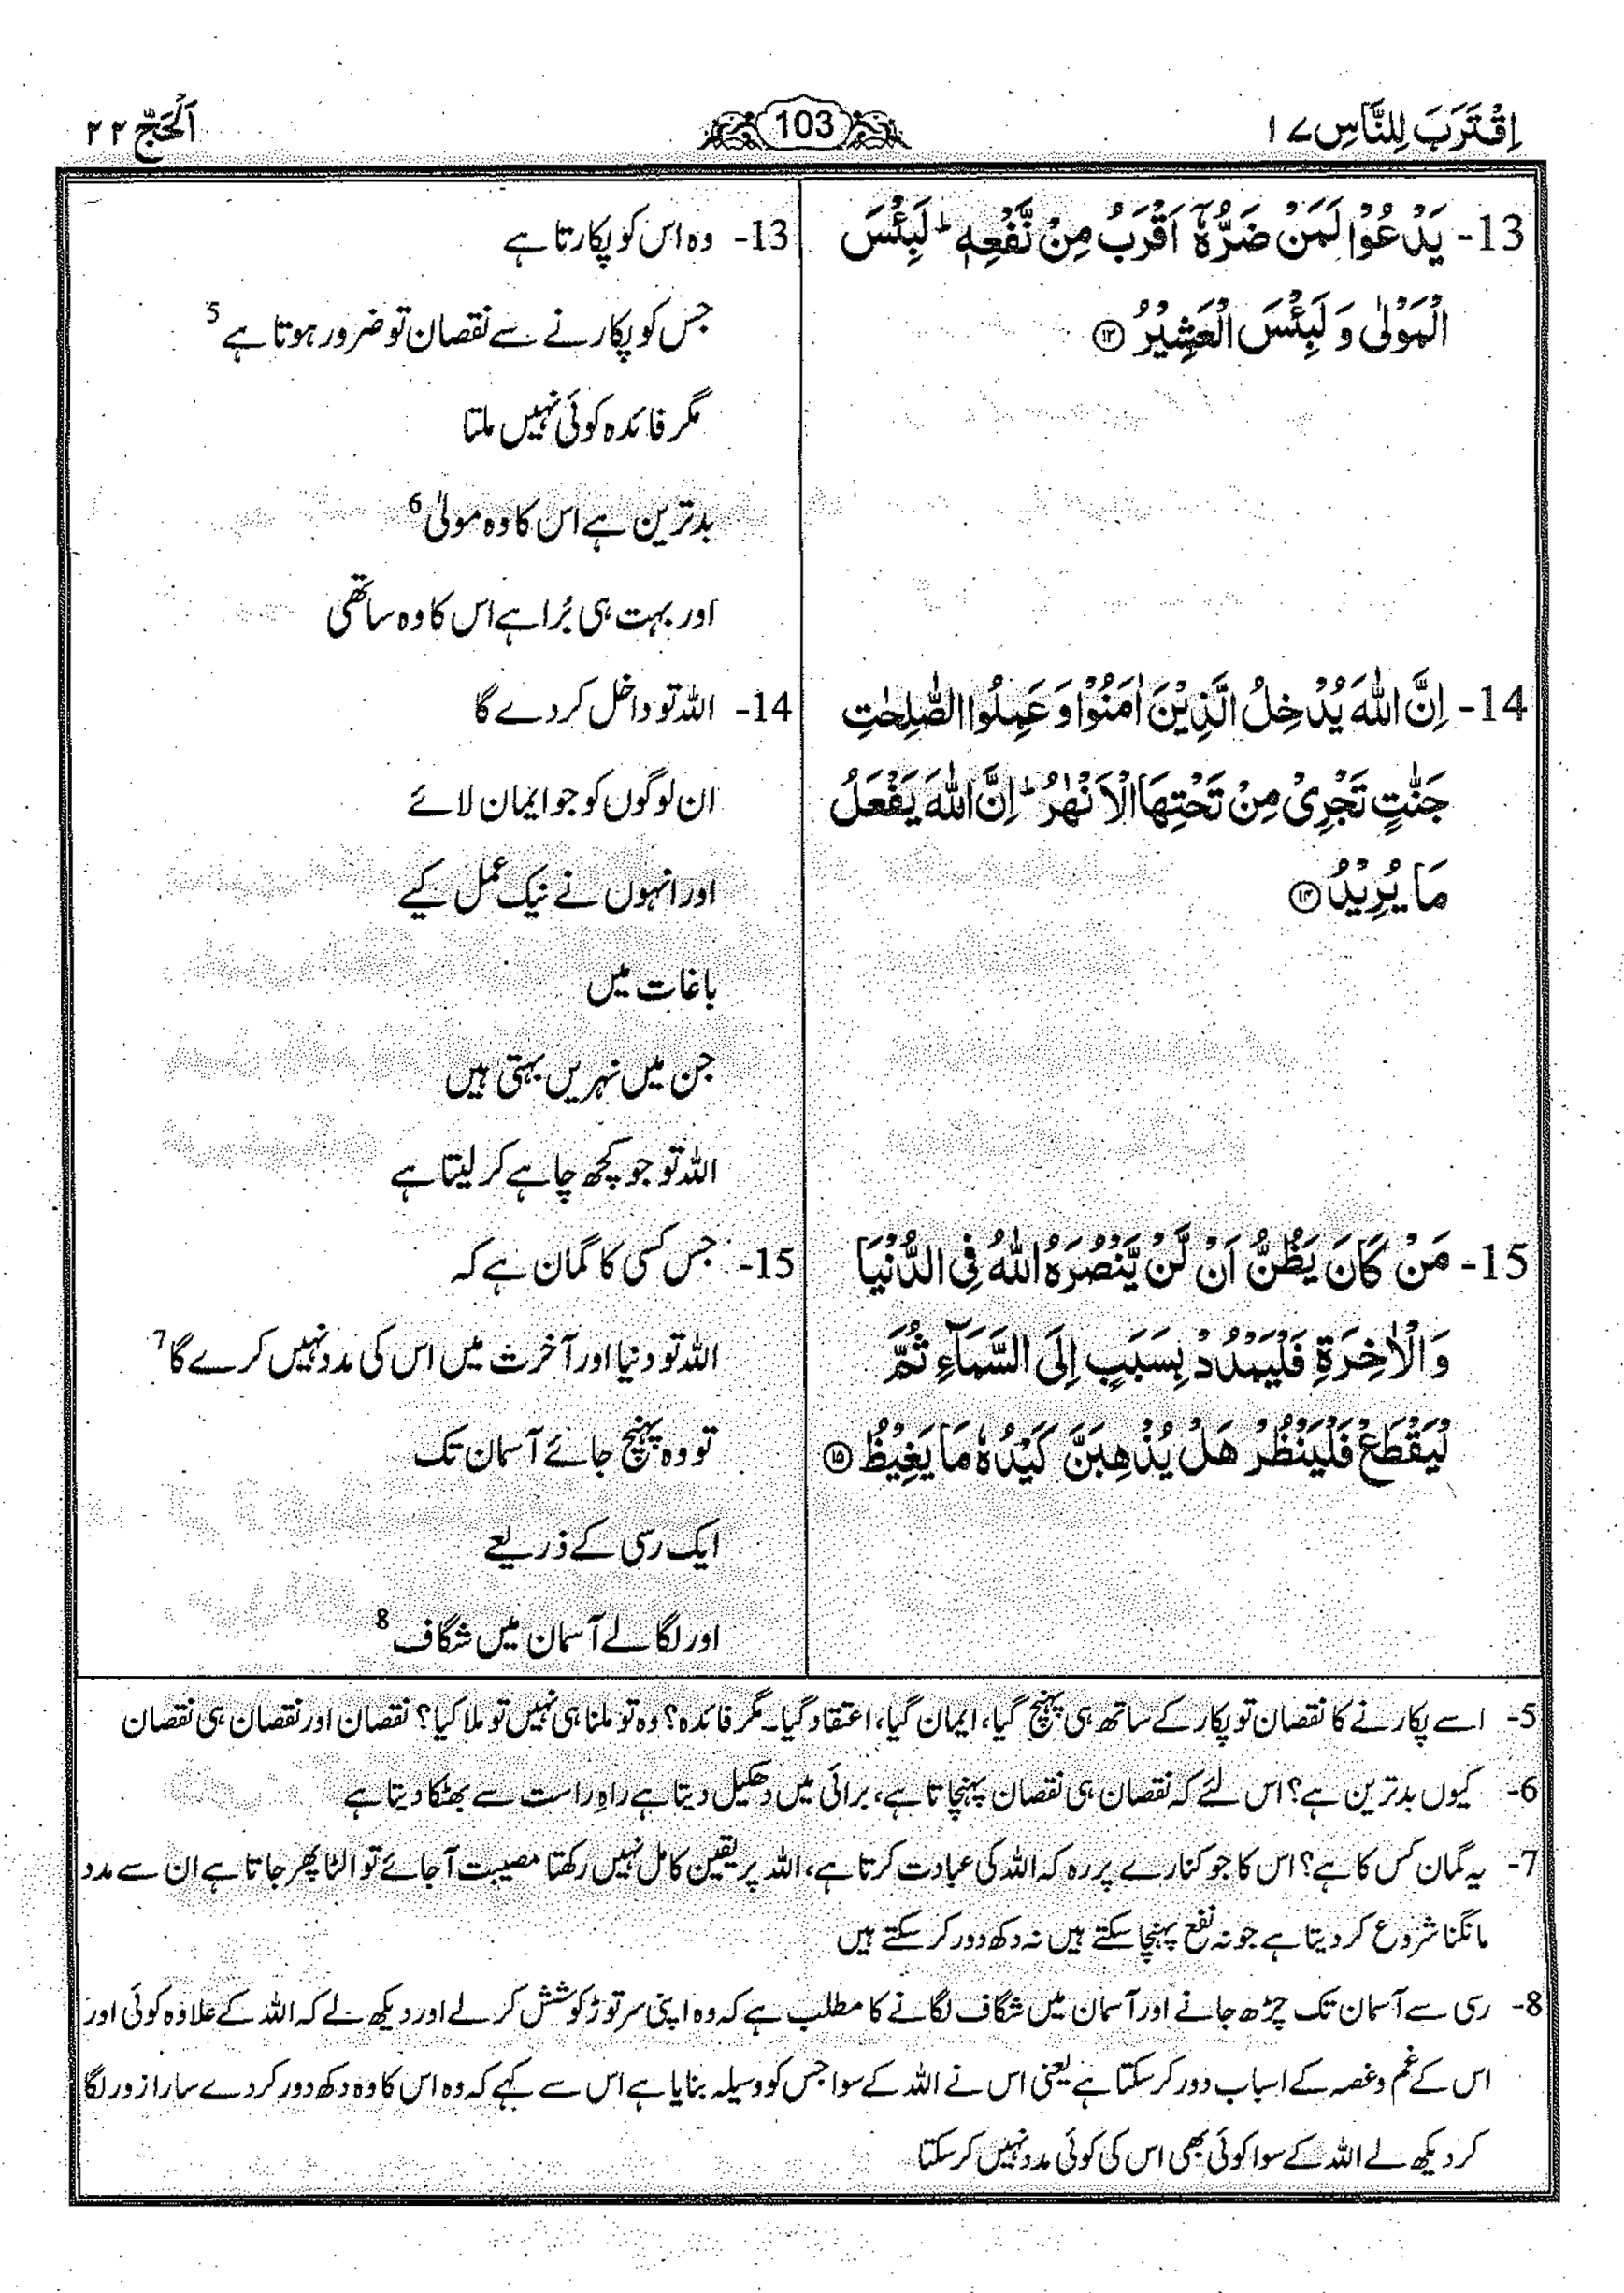 اِقْتَرَبَ لِلنَّاسِ ۱۷
103
اَلْحَجّ ۲۲
13- یَدْعُوْا لَمَنْ ضَرُّهٗۤ اَقْرَبُ مِنْ نَّفْعِهٖ ؕ لَبِئْسَ
الْمَوْلٰی وَ لَبِئْسَ الْعَشِیْرُ ۱۳
14- اِنَّ اللّٰهَ یُدْخِلُ الَّذِیْنَ اٰمَنُوْا وَ عَمِلُوا الصّٰلِحٰتِ
جَنّٰتٍ تَجْرِیْ مِنْ تَحْتِهَا الْاَنْهٰرُ ؕ اِنَّ اللّٰهَ یَفْعَلُ
مَا یُرِیْدُ ۱۴
15- مَنْ کَانَ یَظُنُّ اَنْ لَّنْ یَّنْصُرَهُ اللّٰهُ فِی الدُّنْیَا
وَ الْاٰخِرَةِ فَلْیَمْدُدْ بِسَبَبٍ اِلَی السَّمَآءِ ثُمَّ
لْیَقْطَعْ فَلْیَنْظُرْ هَلْ یُذْهِبَنَّ کَیْدُهٗ مَا یَغِیْظُ ۱۵
13- وہ اس کو پکارتا ہے
جس کو پکارنے سے نقصان تو ضرور ہوتا ہے 5
مگر فائدہ کوئی نہیں ملتا
بدترین ہے اس کا وہ مولیٰ 6
اور بہت ہی بُرا ہے اس کا وہ ساتھی
14- اللہ تو داخل کر دے گا
ان لوگوں کو جو ایمان لائے
اور انہوں نے نیک عمل کیے
باغات میں
جن میں نہریں بہتی ہیں
اللہ تو جو کچھ چاہے کر لیتا ہے
15- جس کسی کا گمان ہے کہ
اللہ تو دنیا اور آخرت میں اس کی مدد نہیں کرے گا 7
تو وہ پہنچ جائے آسمان تک
ایک رسی کے ذریعے
اور لگا لے آسمان میں شگاف 8
5- اسے پکارنے کا نقصان تو پکار کے ساتھ ہی پہنچ گیا، ایمان گیا، اعتقاد گیا۔ مگر فائدہ؟ وہ تو ملنا ہی نہیں تو ملا کیا؟ نقصان اور نقصان ہی نقصان
6- کیوں بدترین ہے؟ اس لئے کہ نقصان ہی نقصان پہنچاتا ہے، برائی میں دھکیل دیتا ہے راہِ راست سے بھٹکا دیتا ہے
7- یہ گمان کس کا ہے؟ اس کا جو کنارے پر رہ کر اللہ کی عبادت کرتا ہے، اللہ پر یقین کامل نہیں رکھتا مصیبت آ جائے تو الٹا پھر جاتا ہے ان سے مدد
مانگنا شروع کر دیتا ہے جو نہ نفع پہنچا سکتے ہیں نہ دکھ دور کر سکتے ہیں
8- رسی سے آسمان تک چڑھ جانے اور آسمان میں شگاف لگانے کا مطلب ہے کہ وہ اپنی سرتوڑ کوشش کر لے اور دیکھ لے کہ اللہ کے علاوہ کوئی اور
اس کے غم و غصہ کے اسباب دور کر سکتا ہے یعنی اس نے اللہ کے سوا جس کو وسیلہ بنایا ہے اس سے کہے کہ وہ اس کا وہ دکھ دور کر دے سارا زور لگا
کر دیکھ لے اللہ کے سوا کوئی بھی اس کی کوئی مدد نہیں کر سکتا